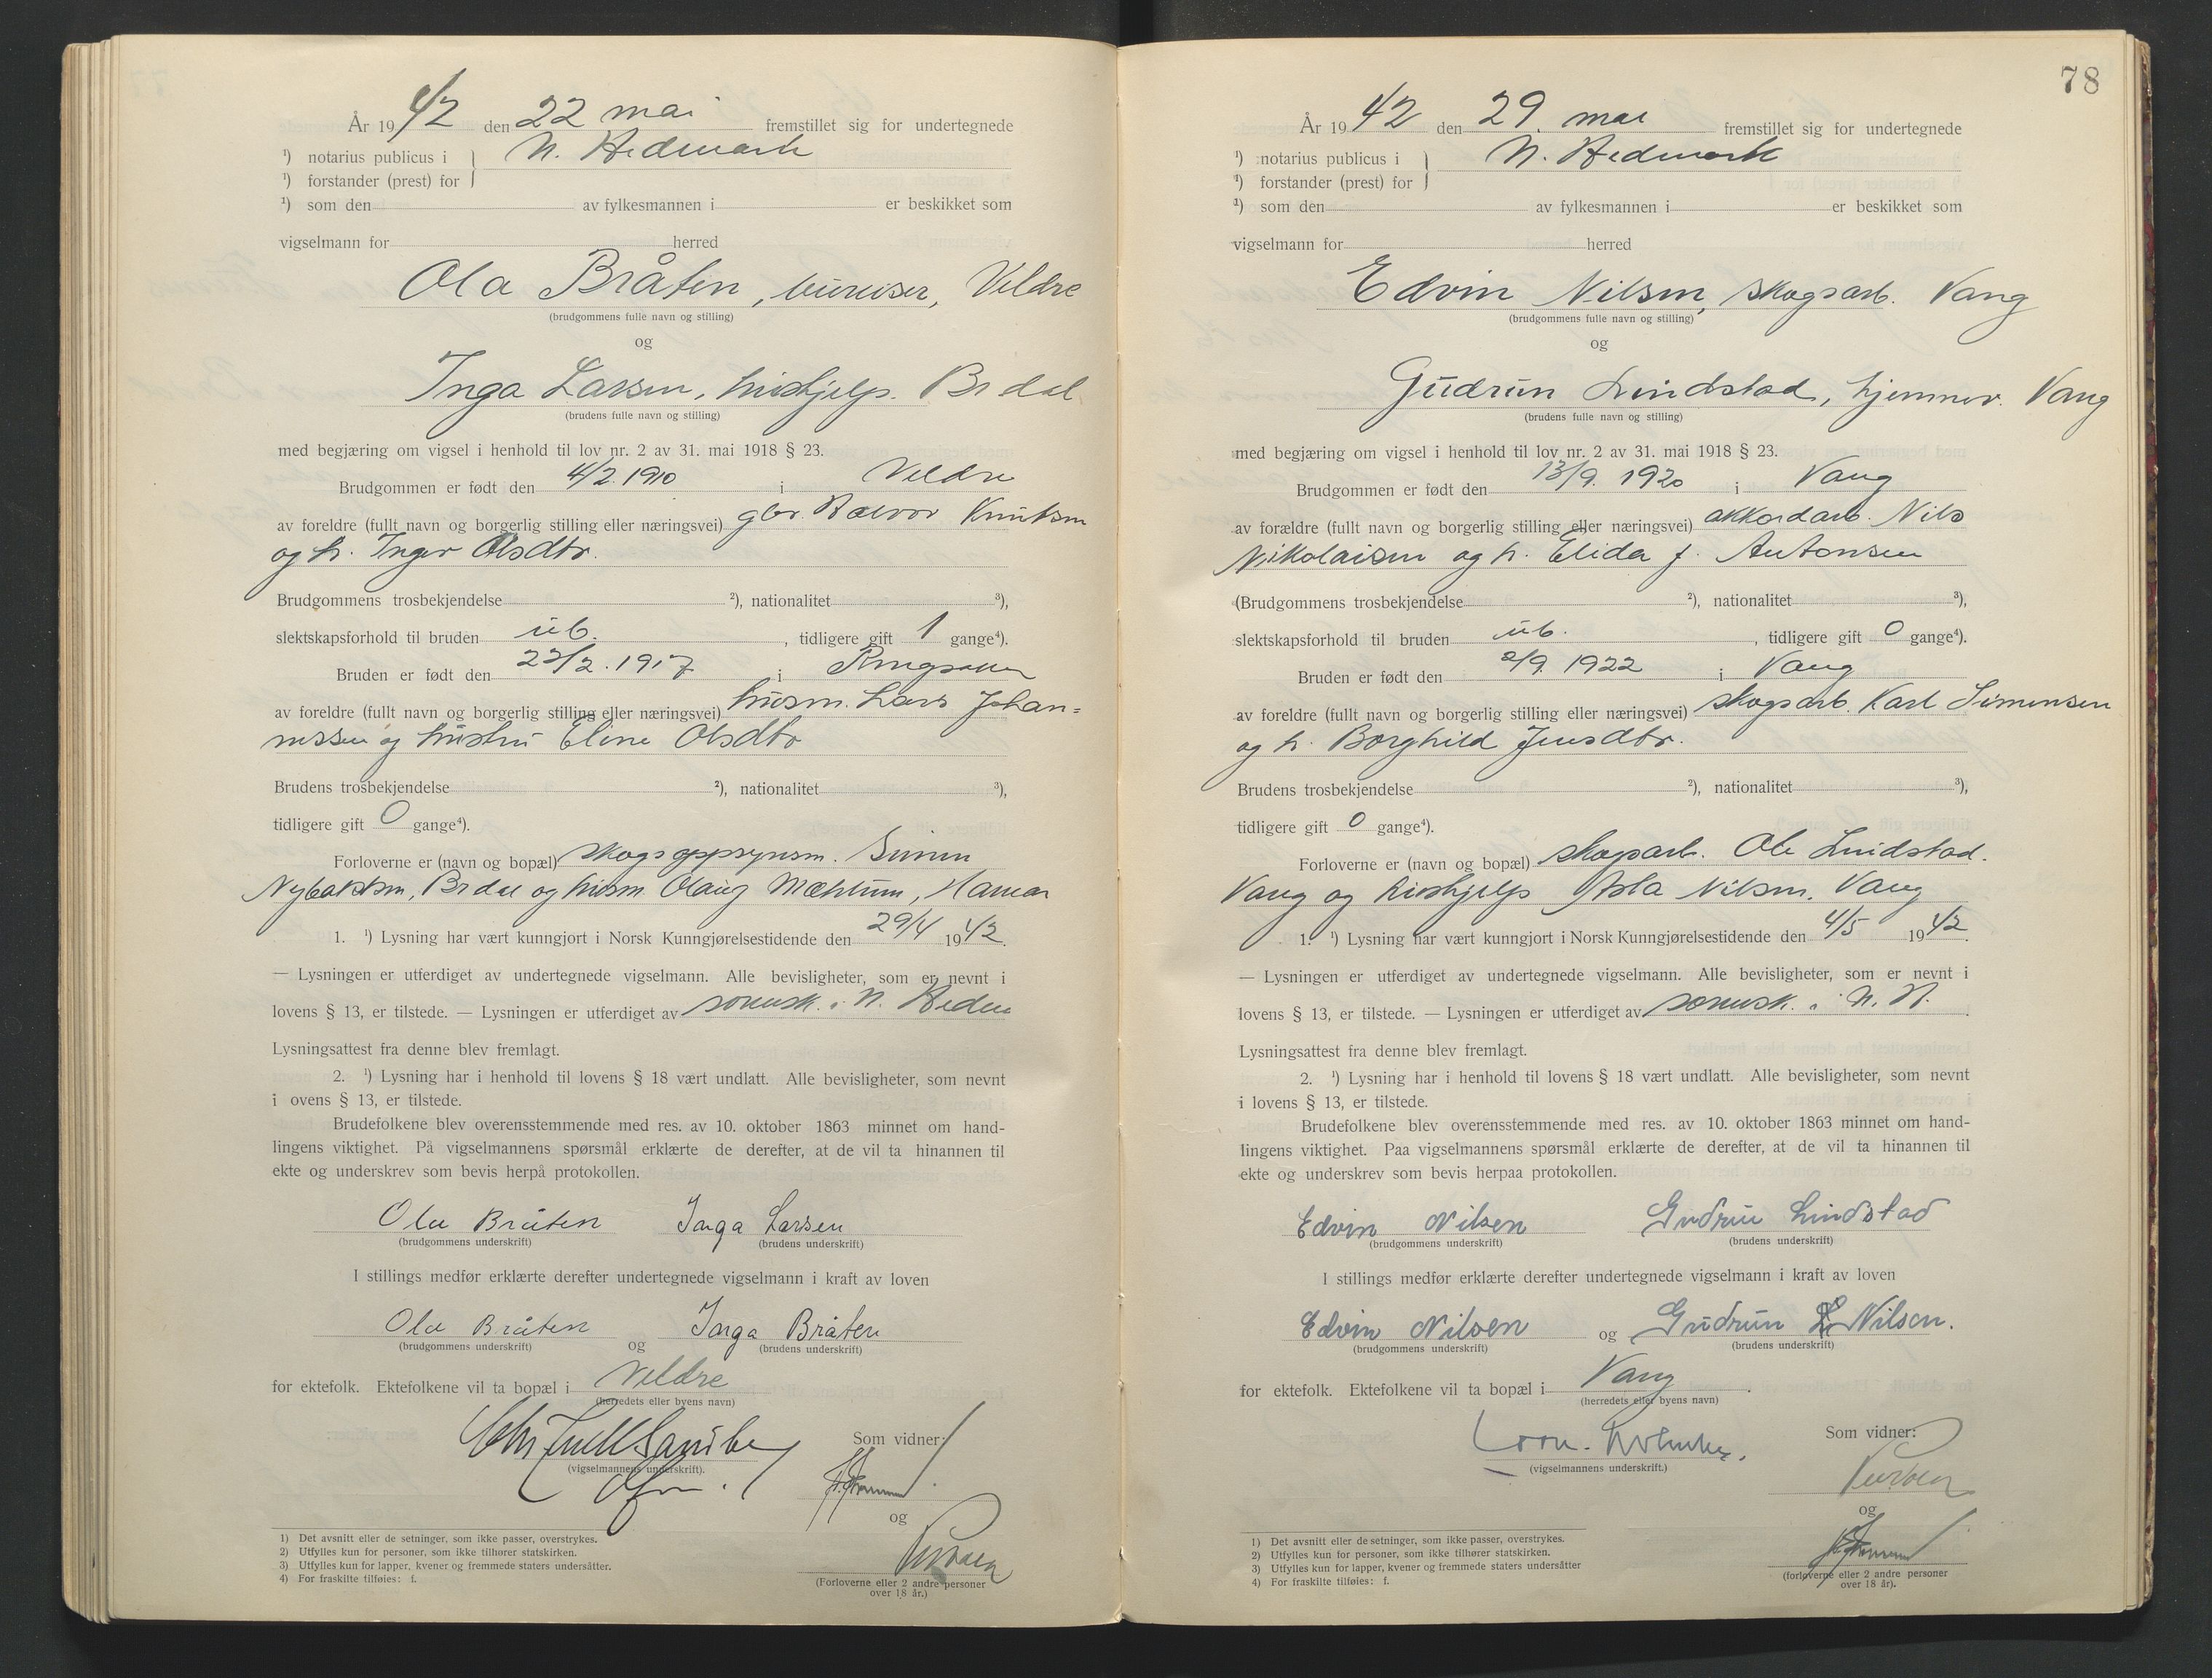 År 19 42 den 22 mai fremstillet sig for undertegnede
¹) notarius publicus i N. Hedmark
¹) forstander (prest) for
¹) som den av fylkesmannen i er beskikket som
vigselmann for herred
Ola Bråten, bureiser, Veldre
(brudgommens fulle navn og stilling)
og
Inga Larsen, hushjelp. Brdal
(brudens fulle navn og stilling)
med begjæring om vigsel i henhold til lov nr. 2 av 31. mai 1918 § 23.
Brudgommen er født den 4/2. 1910 i Veldre
av foreldre (fullt navn og borgerlig stilling eller næringsvei) gbr. Halvor Knutsen
og h. Inger Olsdtr.
Brudgommens trosbekjendelse ²), nationalitet ³),
slektskapsforhold til bruden ub. , tidligere gift 1 gange⁴).
Bruden er født den 23/2. 1917 i Ringsaker
av foreldre (fullt navn og borgerlig stilling eller næringsvei) husm. Lars Johan=
nessen og hustru Eline Olsdtr
Brudens trosbekjendelse ²), nationalitet ³),
tidligere gift 0 gange⁴).
Forloverne er (navn og bopæl) skogsoppsynsm. Simen
Nybakken, Brdal og husm. Olaug Mæhlum, Hamar
1. ¹) Lysning har vært kunngjort i Norsk Kunngjørelsestidende den 29/4 19 42.
— Lysningen er utferdiget av undertegnede vigselmann. Alle bevisligheter, som er nevnt i
lovens § 13, er tilstede. — Lysningen er utferdiget av sorensk. i N. Hedm
Lysningsattest fra denne blev fremlagt.
2. ¹) Lysning har i henhold til lovens § 18 vært undlatt. Alle bevisligheter, som nevnt
i ovens § 13, er tilstede.
Brudefolkene blev overensstemmende med res. av 10. oktober 1863 minnet om hand-
lingens viktighet. På vigselmannens spørsmål erklærte de derefter, at de vil ta hinannen til
ekte og underskrev som bevis herpå protokollen.
Ola Bråten Inga Larsen
(brudgommens underskrift) (brudens underskrift)
I stillings medfør erklærte derefter undertegnede vigselmann i kraft av loven
Ola Bråten og Inga Bråten
(brudgommens underskrift) (brudens underskrift)
for ektefolk. Ektefolkene vil ta bopæl i Veldre
(herredets eller byens navn)
Som vidner:
(vigselmannens underskrift).
og
1) Det avsnitt eller de setninger, som ikke passer, overstrykes.
2) Utfylles kun for personer, som ikke tilhører statskirken.
3) Utfylles kun for lapper, kvener og fremmede staters undersåtter.
4) For fraskilte tilføies: f.
(Forloverne eller 2 andre personer
over 18 år.)
78
År 19 42 den 29. mai fremstillet sig for undertegnede
¹) notarius publicus i N. Hedmark
¹) forstander (prest) for
¹) som den av fylkesmannen i er beskikket som
vigselmann for herred
Edvin Nilsen, skogsarb. Vang
(brudgommens fulle navn og stilling)
og
Gudrun Lindstad, hjemmev. Vang
(brudens fulle navn og stilling)
med begjæring om vigsel i henhold til lov nr. 2 av 31. mai 1918 § 23.
Brudgommen er født den 13/9. 1920 i Vang
av forældre (fullt navn og borgerlig stilling eller næringsvei) akkordarb. Nils
Nikolaisen og h. Elida f. Antonsen
(Brudgommens trosbekjendelse ²), nationalitet ³),
slektskapsforhold til bruden ub. , tidligere gift 0 gange⁴).
Bruden er født den 2/9. 1922 i Vang
av foreldre (fullt navn og borgerlig stilling eller næringsvei) skogsarb. Karl Simensen
og h. Borghild Jensdtr.
Brudens trosbekjendelse ²), nationalitet ³),
tidligere gift 0 gange⁴).
Forloverne er (navn og bopæl) skogsarb. Ole Lindstad.
Vang og hushjelp Asla Nilsen. Vang
1. ¹) Lysning har vært kunngjort i Norsk Kunngjørelsestidende den 4/5 19 42.
— Lysningen er utferdiget av undertegnede vigselmann. Alle bevisligheter, som er nevnt i
lovens § 13, er tilstede. — Lysningen er utferdiget av sorensk. i N. H.
Lysningsattest fra denne blev fremlagt.
2. ¹) Lysning har i henhold til lovens § 18 vært undlatt. Alle bevisligheter, som nevnt
i lovens § 13, er tilstede.
Brudefolkene blev overensstemmende med res. av 10. oktober 1863 minnet om hand-
lingens viktighet. Paa vigselmannens spørsmål erklærte de derefter, at de vil ta hinannen til
ekte og underskrev som bevis herpaa protokollen.
Edvin Nilsen Gudrun Lindstad
(brudgommens underskrift) (brudens underskrift)
I stillings medfør erklærte derefter undertegnede vigselmann i kraft av loven
Edvin Nilsen og Gudrun L Nilsen.
(brudgommens underskrift) (brudens underskrift)
for ektefolk. Ektefolkene vil ta bopæl i Vang.
(herredets eller byens navn)
Som vidner:
(vigselmannens underskrift.)
og
1) Det avsnitt eller de setninger, som ikke passer, overstrykes.
2) Utfylles kun for personer, som ikke tilhører statskirken.
3) Utfylles kun for lapper, kvener og fremmede staters undersåtter
4) For fraskilte tilføies: f.
(forloverne eller 2 andre personer
over 18 år).